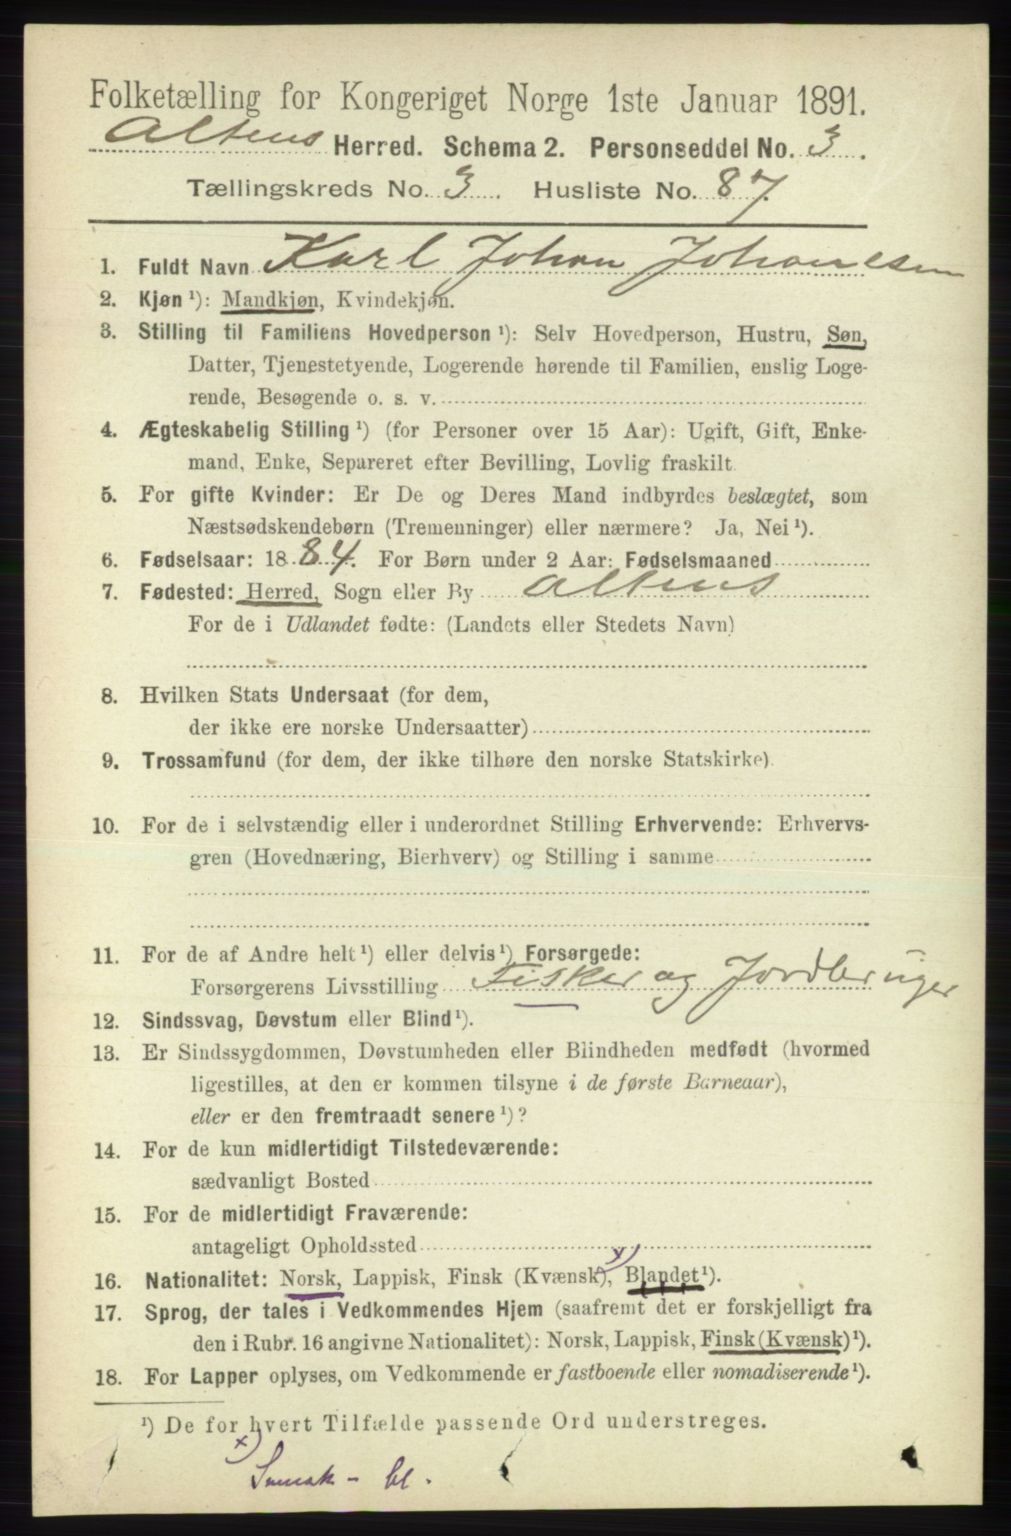 Folketælling for Kongeriget Norge 1ste Januar 1891.
Altens Herred. Schema 2. Personseddel No. 3.
Tællingskreds No. 3. Husliste No. 87.
1. Fuldt Navn Karl Johan Johannesen
2. Kjøn ¹): Mandkjøn, Kvindekjøn.
3. Stilling til Familiens Hovedperson ¹): Selv Hovedperson, Hustru, Søn,
Datter, Tjenestetyende, Logerende hørende til Familien, enslig Loge-
rende, Besøgende o. s. v.
4. Ægteskabelig Stilling ¹) (for Personer over 15 Aar): Ugift, Gift, Enke-
mand, Enke, Separeret efter Bevilling, Lovlig fraskilt
5. For gifte Kvinder: Er De og Deres Mand indbyrdes beslægtet, som
Næstsødskendebørn (Tremenninger) eller nærmere? Ja, Nei ¹).
6. Fødselsaar: 1884. For Børn under 2 Aar: Fødselsmaaned
7. Fødested: Herred, Sogn eller By Altens
For de i Udlandet fødte: (Landets eller Stedets Navn)
8. Hvilken Stats Undersaat (for dem,
der ikke ere norske Undersaatter)
9. Trossamfund (for dem, der ikke tilhøre den norske Statskirke).
10. For de i selvstændig eller i underordnet Stilling Erhvervende: Erhvervs-
gren (Hovednæring, Bierhverv) og Stilling i samme
11. For de af Andre helt ¹) eller delvis ¹) Forsørgede:
Forsørgerens Livsstilling Fisker og Jordbruger
12. Sindssvag, Døvstum eller Blind ¹).
13. Er Sindssygdommen, Døvstumheden eller Blindheden medfødt (hvormed
ligestilles, at den er kommen tilsyne i de første Barneaar),
eller er den fremtraadt senere ¹)?
14. For de kun midlertidigt Tilstedeværende:
sædvanligt Bosted
15. For de midlertidigt Fraværende:
antageligt Opholdssted
x)
16. Nationalitet: Norsk, Lappisk, Finsk (Kvænsk), Blandet ¹).
17. Sprog, der tales i Vedkommendes Hjem (saafremt det er forskjelligt fra
den i Rubr. 16 angivne Nationalitet): Norsk, Lappisk, Finsk (Kvænsk) ¹).
18. For Lapper oplyses, om Vedkommende er fastboende eller nomadiserende ¹).
¹) De for hvert Tilfælde passende Ord understreges.
x)
bl.